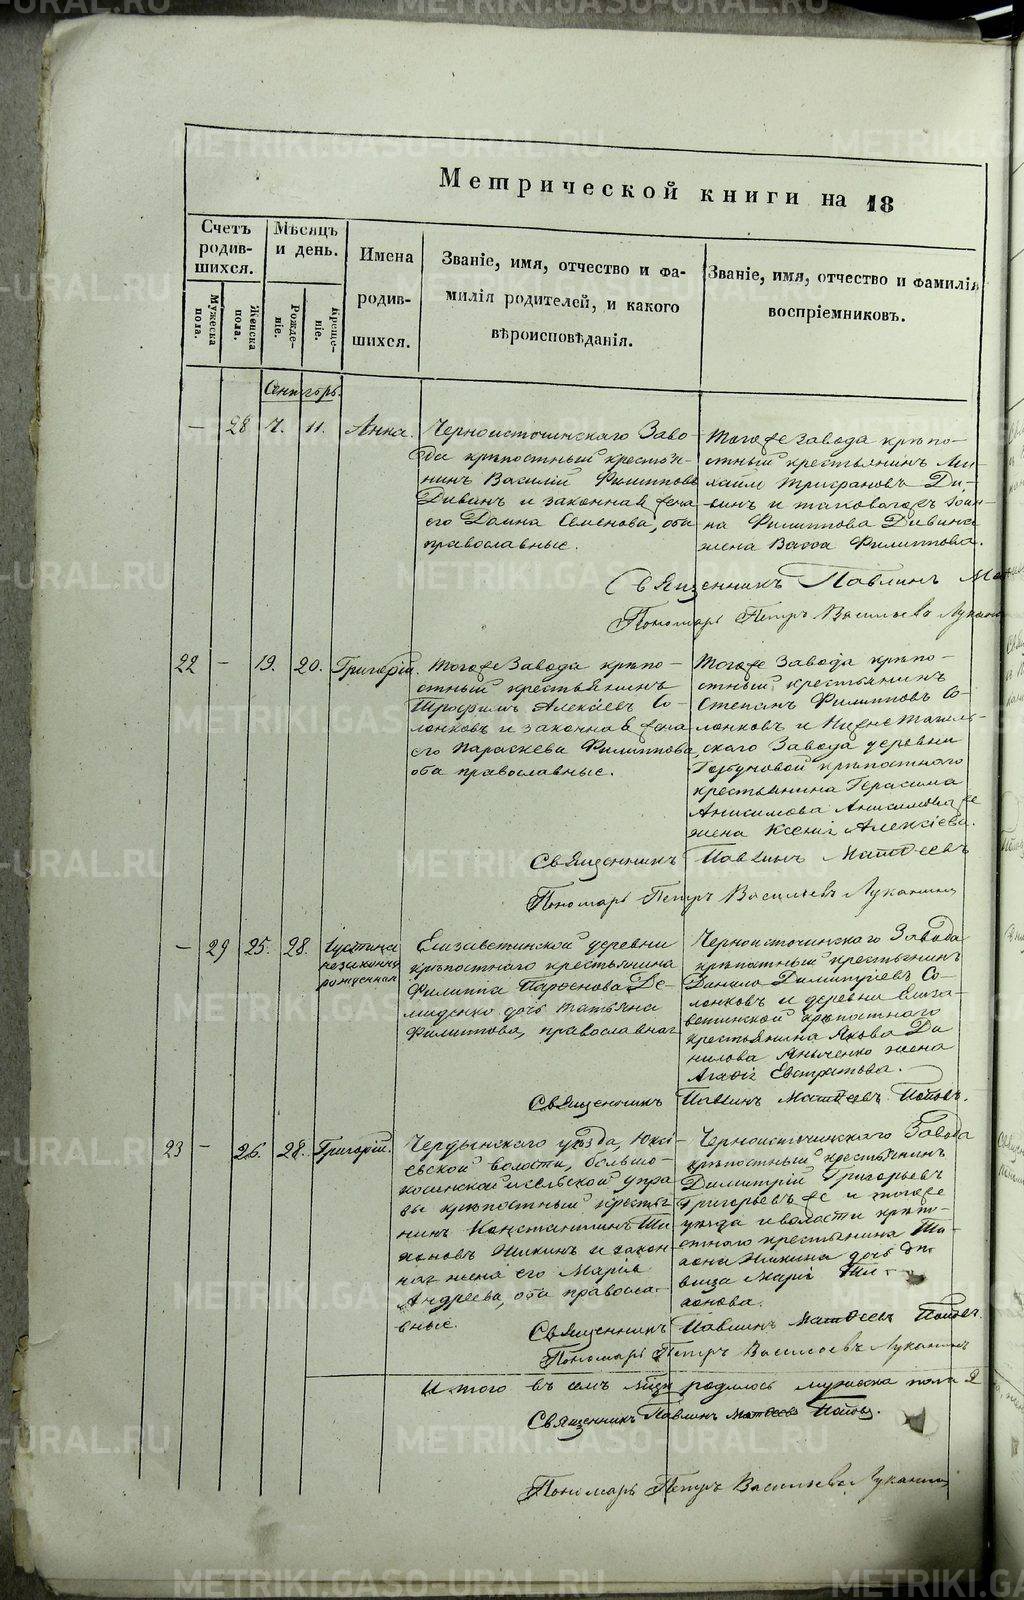 Метрической книги на 18
Счетъ родив-шихся.
Мѣсяцъ и день.
Имена родив-шихся.
Званіе, имя, отчество и фа-
милія родителей, и какого
вѣроисповѣданія.
Званіе, имя, отчество и фамилія
воспріемниковъ.
Мужеска пола.
Женска пола.
Рожде-ніе.
Креще-ніе.
Сентябрь.
— 28 7. 11. Анна.
Черноисточинскаго Заво-
да крѣпостный крестья-
нинъ Василій Филипповъ
Дивинъ и законная жена
его Домна Семенова, оба
православные.
Тогоже завода крѣпо-
стный крестьянинъ Ми-
хаилъ Трифановъ Ди-
винъ и таковагожъ
Филиппова Дивина
жена Васса Филиппова.
Священникъ Павлинъ
Пономарь Петръ Васильевъ Луканинъ
22 — 19. 20. Григорій.
Тогоже Завода крѣпо-
стный крестьянинъ
Трофимъ Алексѣевъ Со-
лонковъ и законная жена
его Параскева Филиппова,
оба православные.
Тогоже Завода крѣпо-
стный крестьянинъ
Степанъ Филипповъ Со-
лонковъ и Нижнетагиль-
скаго Завода деревни
Горбуновой крѣпостнаго
крестьянина Герасима
Анисимова
жена Ксенія Алексѣева.
Священникъ Павлинъ Матѳеевъ
Пономарь Петръ Васильевъ Луканинъ
— 29 25. 28. Іустина
незаконно
рожденная
Елизаветинской деревни
крѣпостнаго крестьянина
Филиппа Парѳенова Де-
миденко дочь Татьяна
Филиппова, православная
Черноисточинскаго Завода
крѣпостный крестьянинъ
Данило Димитріевъ Со-
лонковъ и деревни Елиза-
ветинской крѣпостнаго
крестьянина Якова Да
нилова жена
Агафія Евстратова.
Священникъ Павлинъ Матѳеевъ Поповъ.
23 — 26. 28. Григорій.
Чердынскаго уѣзда, Юкс-
евской волости, больше-
косинской сельской упра
вы крѣпостный крестья
нинъ Константинъ Ти
хоновъ и закон
ная жена его Марія
Андреева, оба правосла-
вные.
Черноисточинскаго Завода
крѣпостный крестьянинъ
Димитрій Григорьевъ
Григорьевъ же и тогоже
уѣзда и волости крѣпо-
стнаго крестьянина Ти-
хона дочь дѣ
вица Марія Ти-
хонова.
Священникъ Павлинъ Матѳеевъ Поповъ.
Пономарь Петръ Васильевъ Луканинъ
Итого въ семъ родилось мужеска пола 2
Священникъ Павлинъ Матѳеевъ Поповъ.
Пономарь Петръ Васильевъ Луканинъ
METRIKI.GASO-URAL.RU